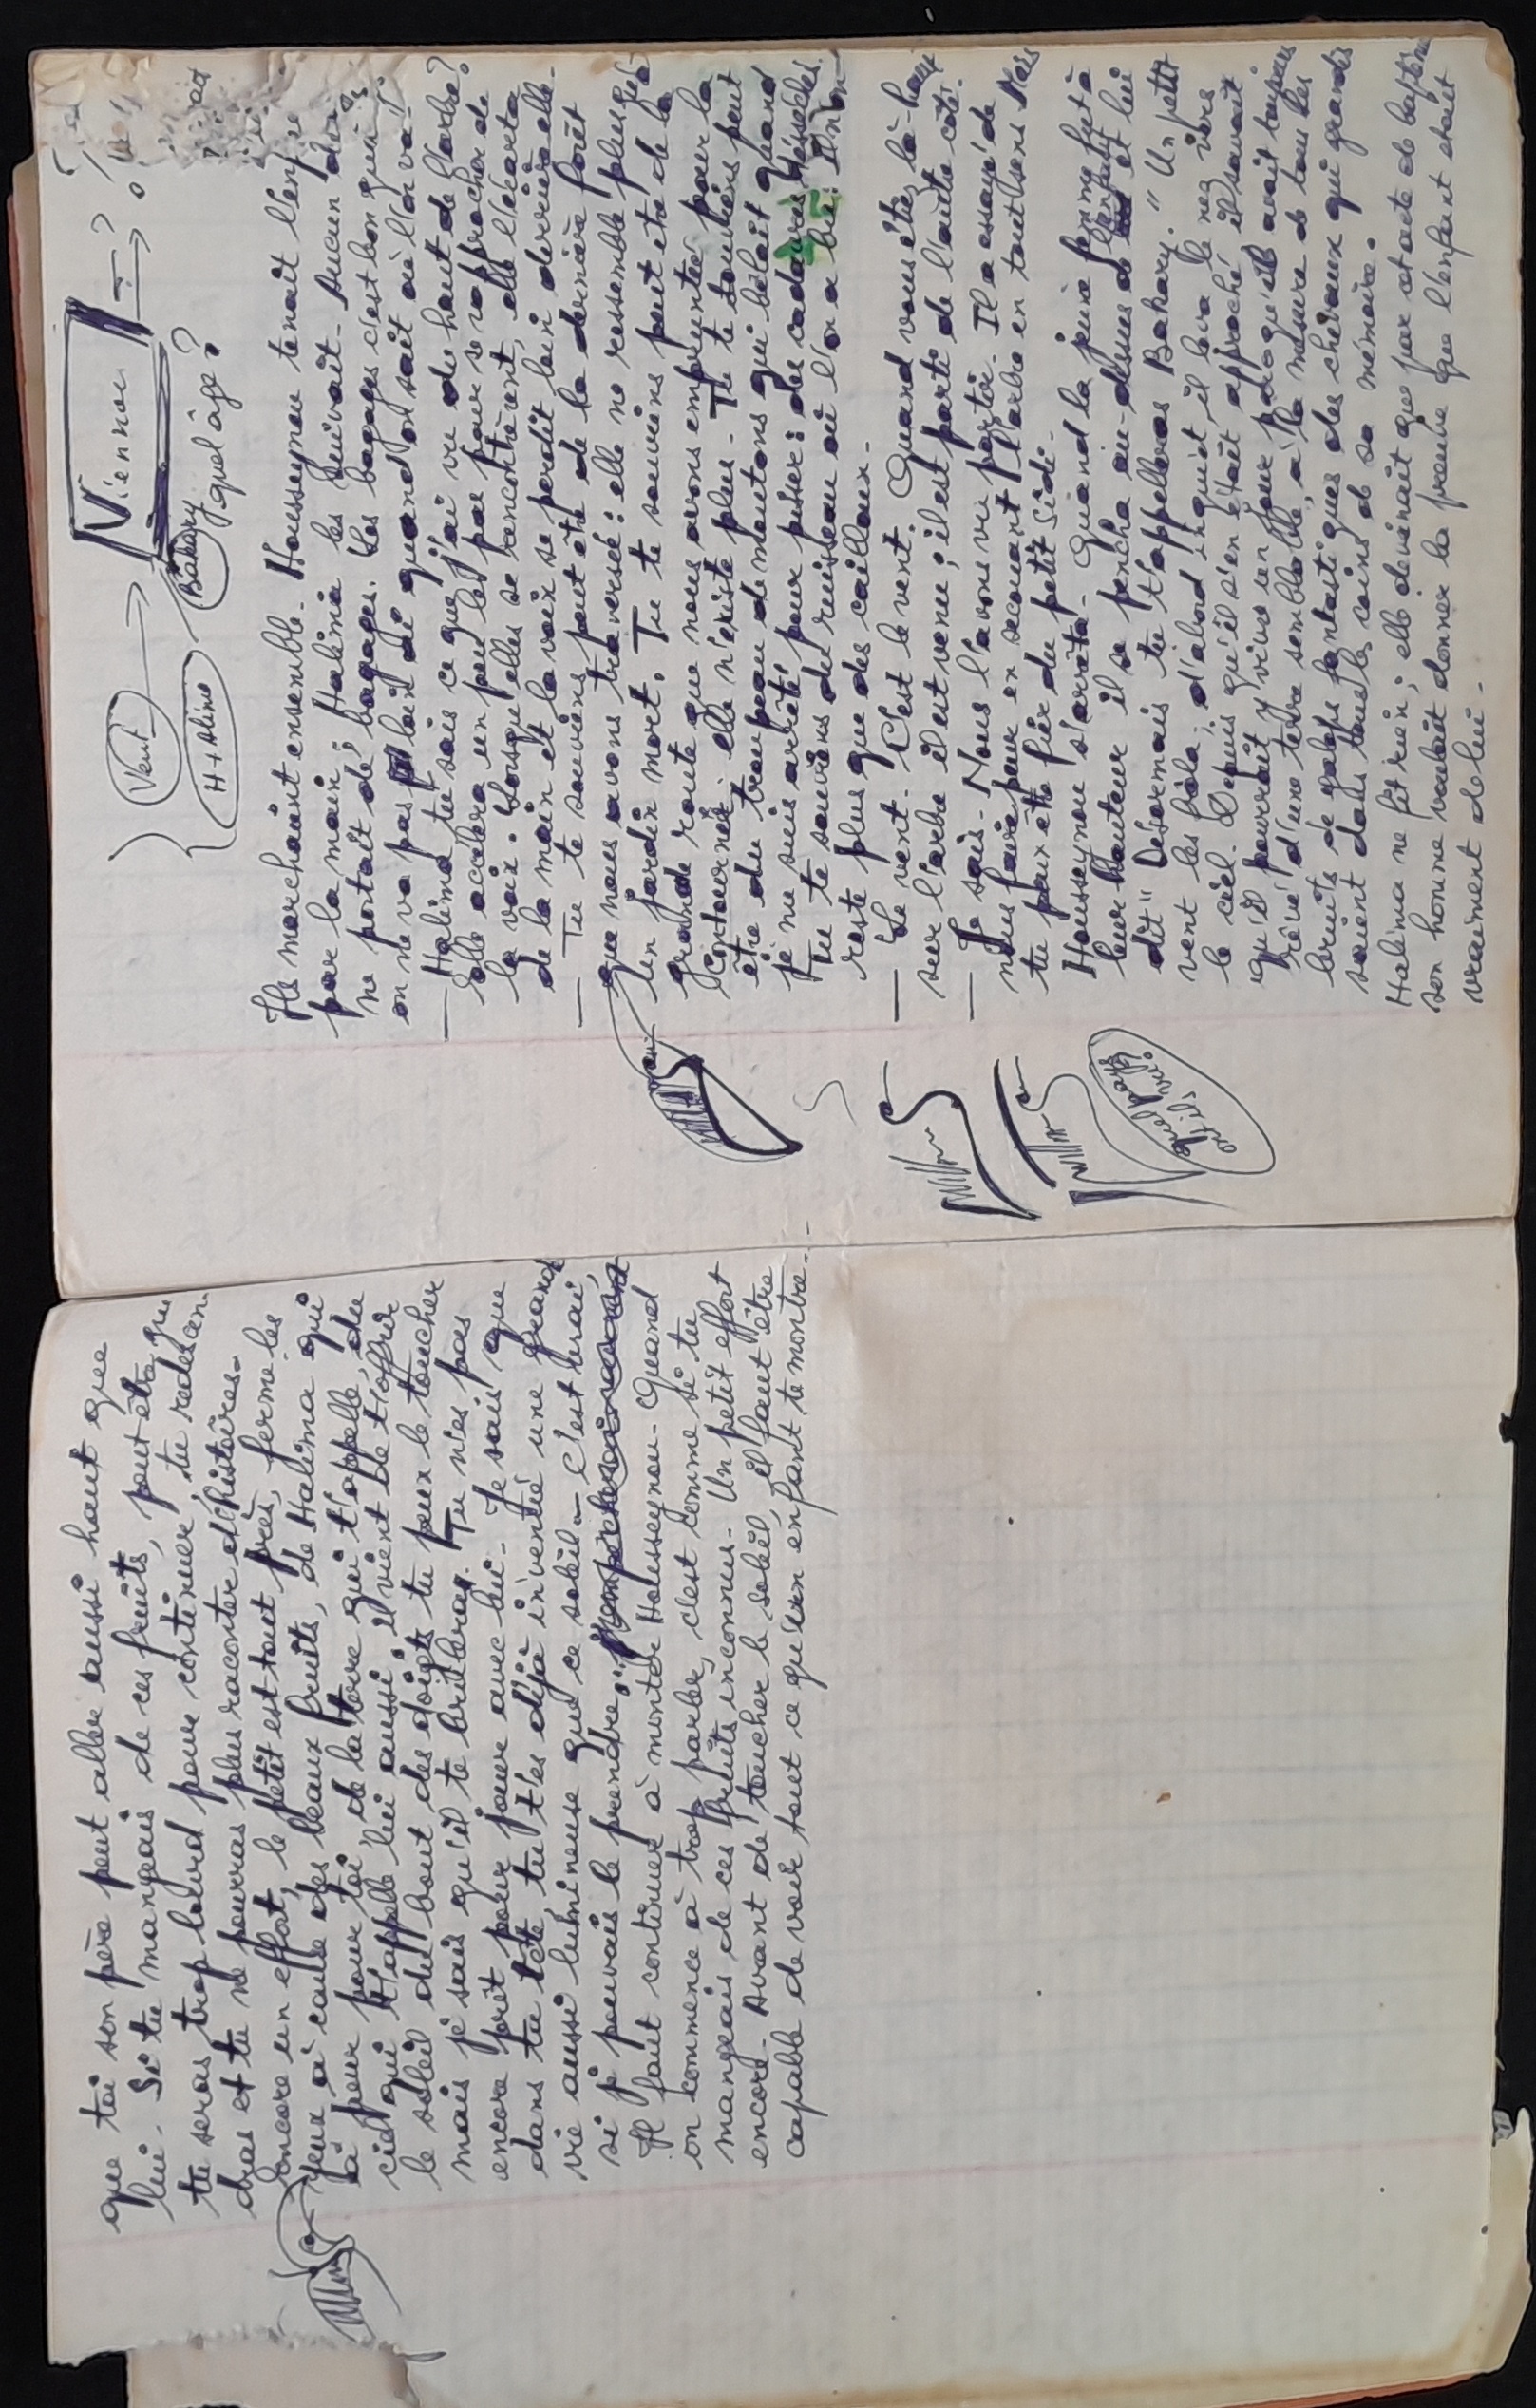 que toi son père peut aller aussi haut que
lui. Si tu mangeais de ces fruits, peut être que
tu seras trop lourd pour continuer, tu redescen-
dras et tu ne pourras plus raconter d'histoires.
Encore un effort, le petit est tout près, ferme les
yeux à cause des beaux fruits, de Halima qui
a peur pour toi, de la terre qui t'appelle, du
ciel qui t'appelle lui aussi, il vient de t'offrir
le soleil au bout des doigts tu peux le toucher
mais je sais qu'il te brûlera. Tu n'es pas
encore prêt pour jouer avec lui. Je sais que
dans ta tête, tu t'es déjà inventé une grande
vie aussi lumineuse que ce soleil — C'est vrai,
si je pouvais le prendre,
Il faut continuer à monter Housseynou. Quand
on commence à trop parler, c'est comme si tu
mangeais de ces fruits inconnus. Un petit effort
encore. Avant de toucher le soleil, il faut être
capable de voir tout ce qu'un enfant te montre...
Vienne ?
Vent
H + Aline
Bakary
quel âge ?
Ils marchaient ensemble. Housseynou tenait l'enfant
par la main, Halima les suivait. Aucun d'eux
ne portait de bagages. Les bagages c'est bon quand
on ne va pas loin et quand on sait où l'on va.
— Halima tu sais ce que j'ai vu du haut de l'arbre ?
Elle accéléra un peu les pas pour se rapprocher de
la voix. Lorsqu'elles se rencontrèrent, elle l'écarta
de la main et la voix se perdit loin derrière elle.
— Tu te souviens peut être de la dernière forêt
que nous avons traversée : elle ne ressemble plus qu'à
un jardin mort. Tu te souviens peut être de la
grande route que nous avons empruntée pour la
contourner : elle n'existe plus. Tu te souviens peut
être du troupeau de moutons qui bêlait quand
je me suis arrêté pour pisser : des cadavres desséchés.
Tu te souviens du ruisseau où l'on a bu : il n'en
reste plus que des cailloux.
— Le vent. C'est le vent. Quand vous étiez là-haut
sur l'arbre il est venu ; il est parti de l'autre côté.
— Je sais. Nous l'avons vu partir. Il a essayé de
nous faire peur en secouant l'arbre en tout sens mais
tu peux être fier du petit Sidi.
Housseynou s'arrêta. Quand la jeune femme fut à
leur hauteur il se pencha au-dessus de l'enfant et lui
dit " Désormais tu t'appelleras Bakary. " Un petit
vent les frôla ; d'abord inquiet, il leva le nez vers
le ciel. Depuis qu'il s'en était approché il savait
qu'il pourrait y vivre un jour puisqu'il avait toujours
rêvé d'une terre semblable, à la mesure de tous les
bruits de galops fantastiques des chevaux qui grandis-
saient dans tous les coins de sa mémoire.
Halima ne fit rien ; elle devinait que par cet acte de baptême
son homme voulait donner la preuve que l'enfant était
vraiment de lui.
quel pays
ont-ils
vu ?